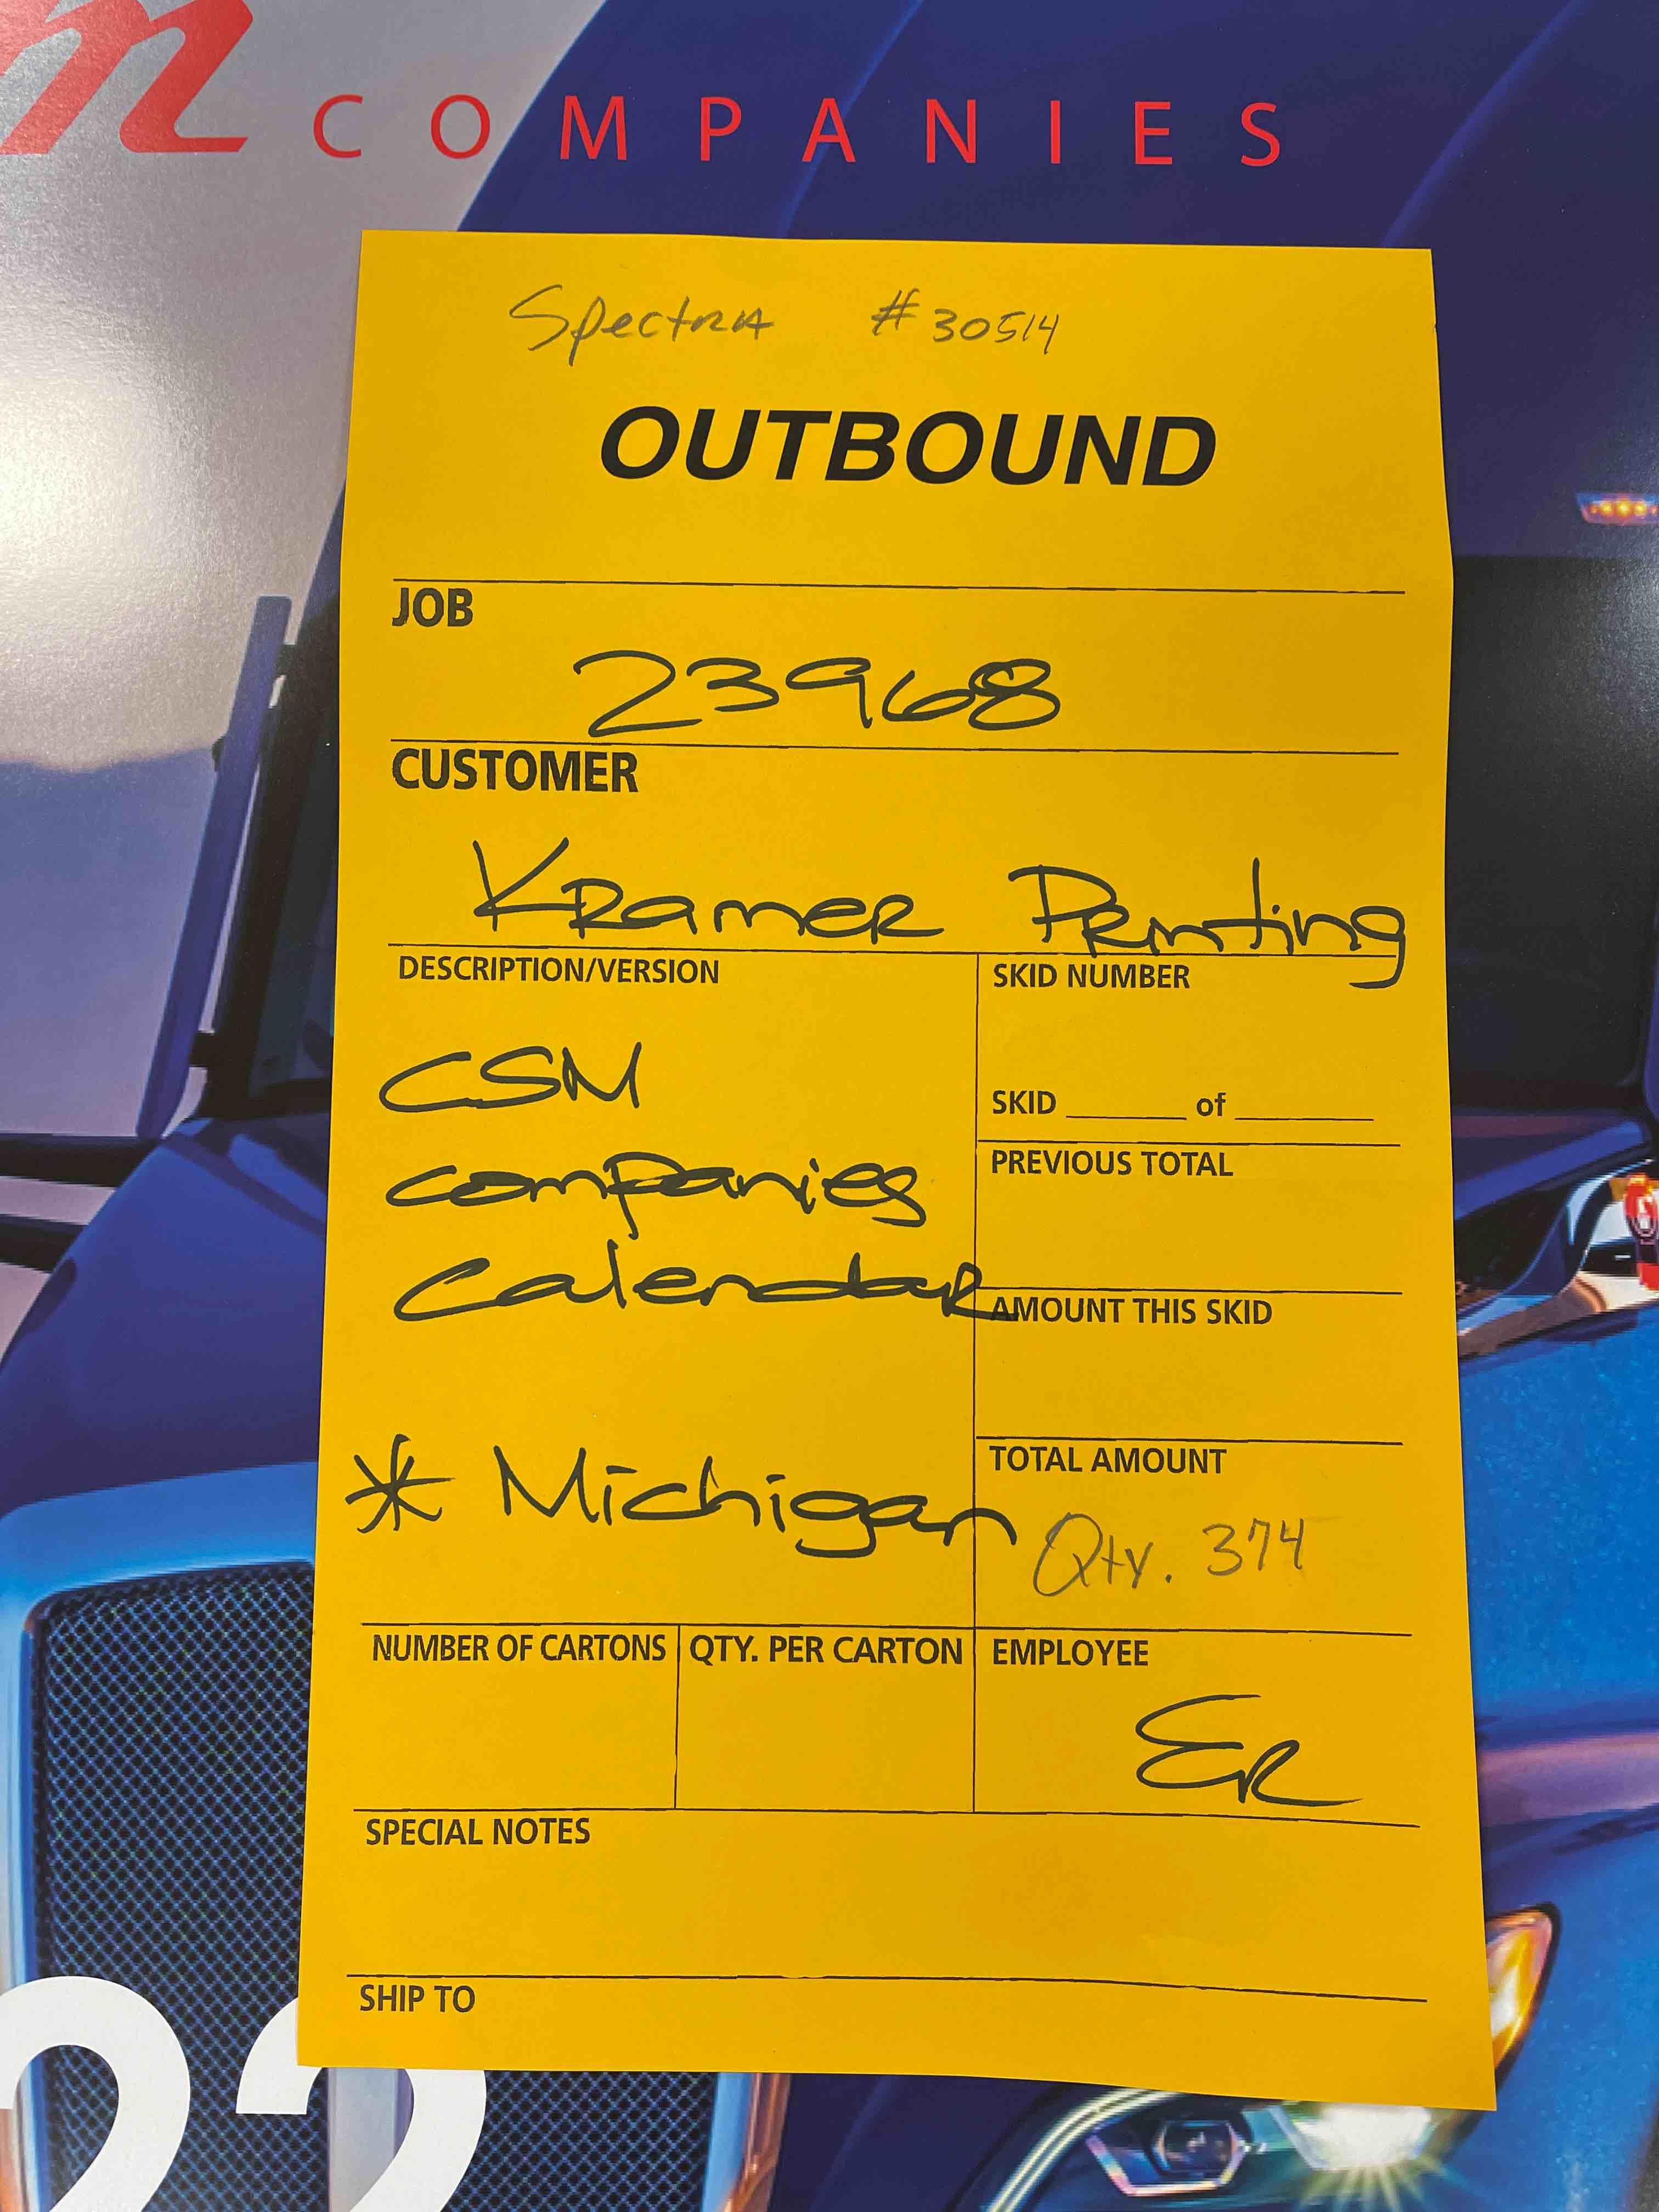 m COMPANIES
Spectra #30514
OUTBOUND
JOB
23968
CUSTOMER
Kramer Printing
DESCRIPTION/VERSION
CSM
companies
calendar
* Michigan
SKID NUMBER
SKID ______ of ______
PREVIOUS TOTAL
AMOUNT THIS SKID
TOTAL AMOUNT
Qty. 374
NUMBER OF CARTONS
QTY. PER CARTON
EMPLOYEE
ER
SPECIAL NOTES
SHIP TO
22